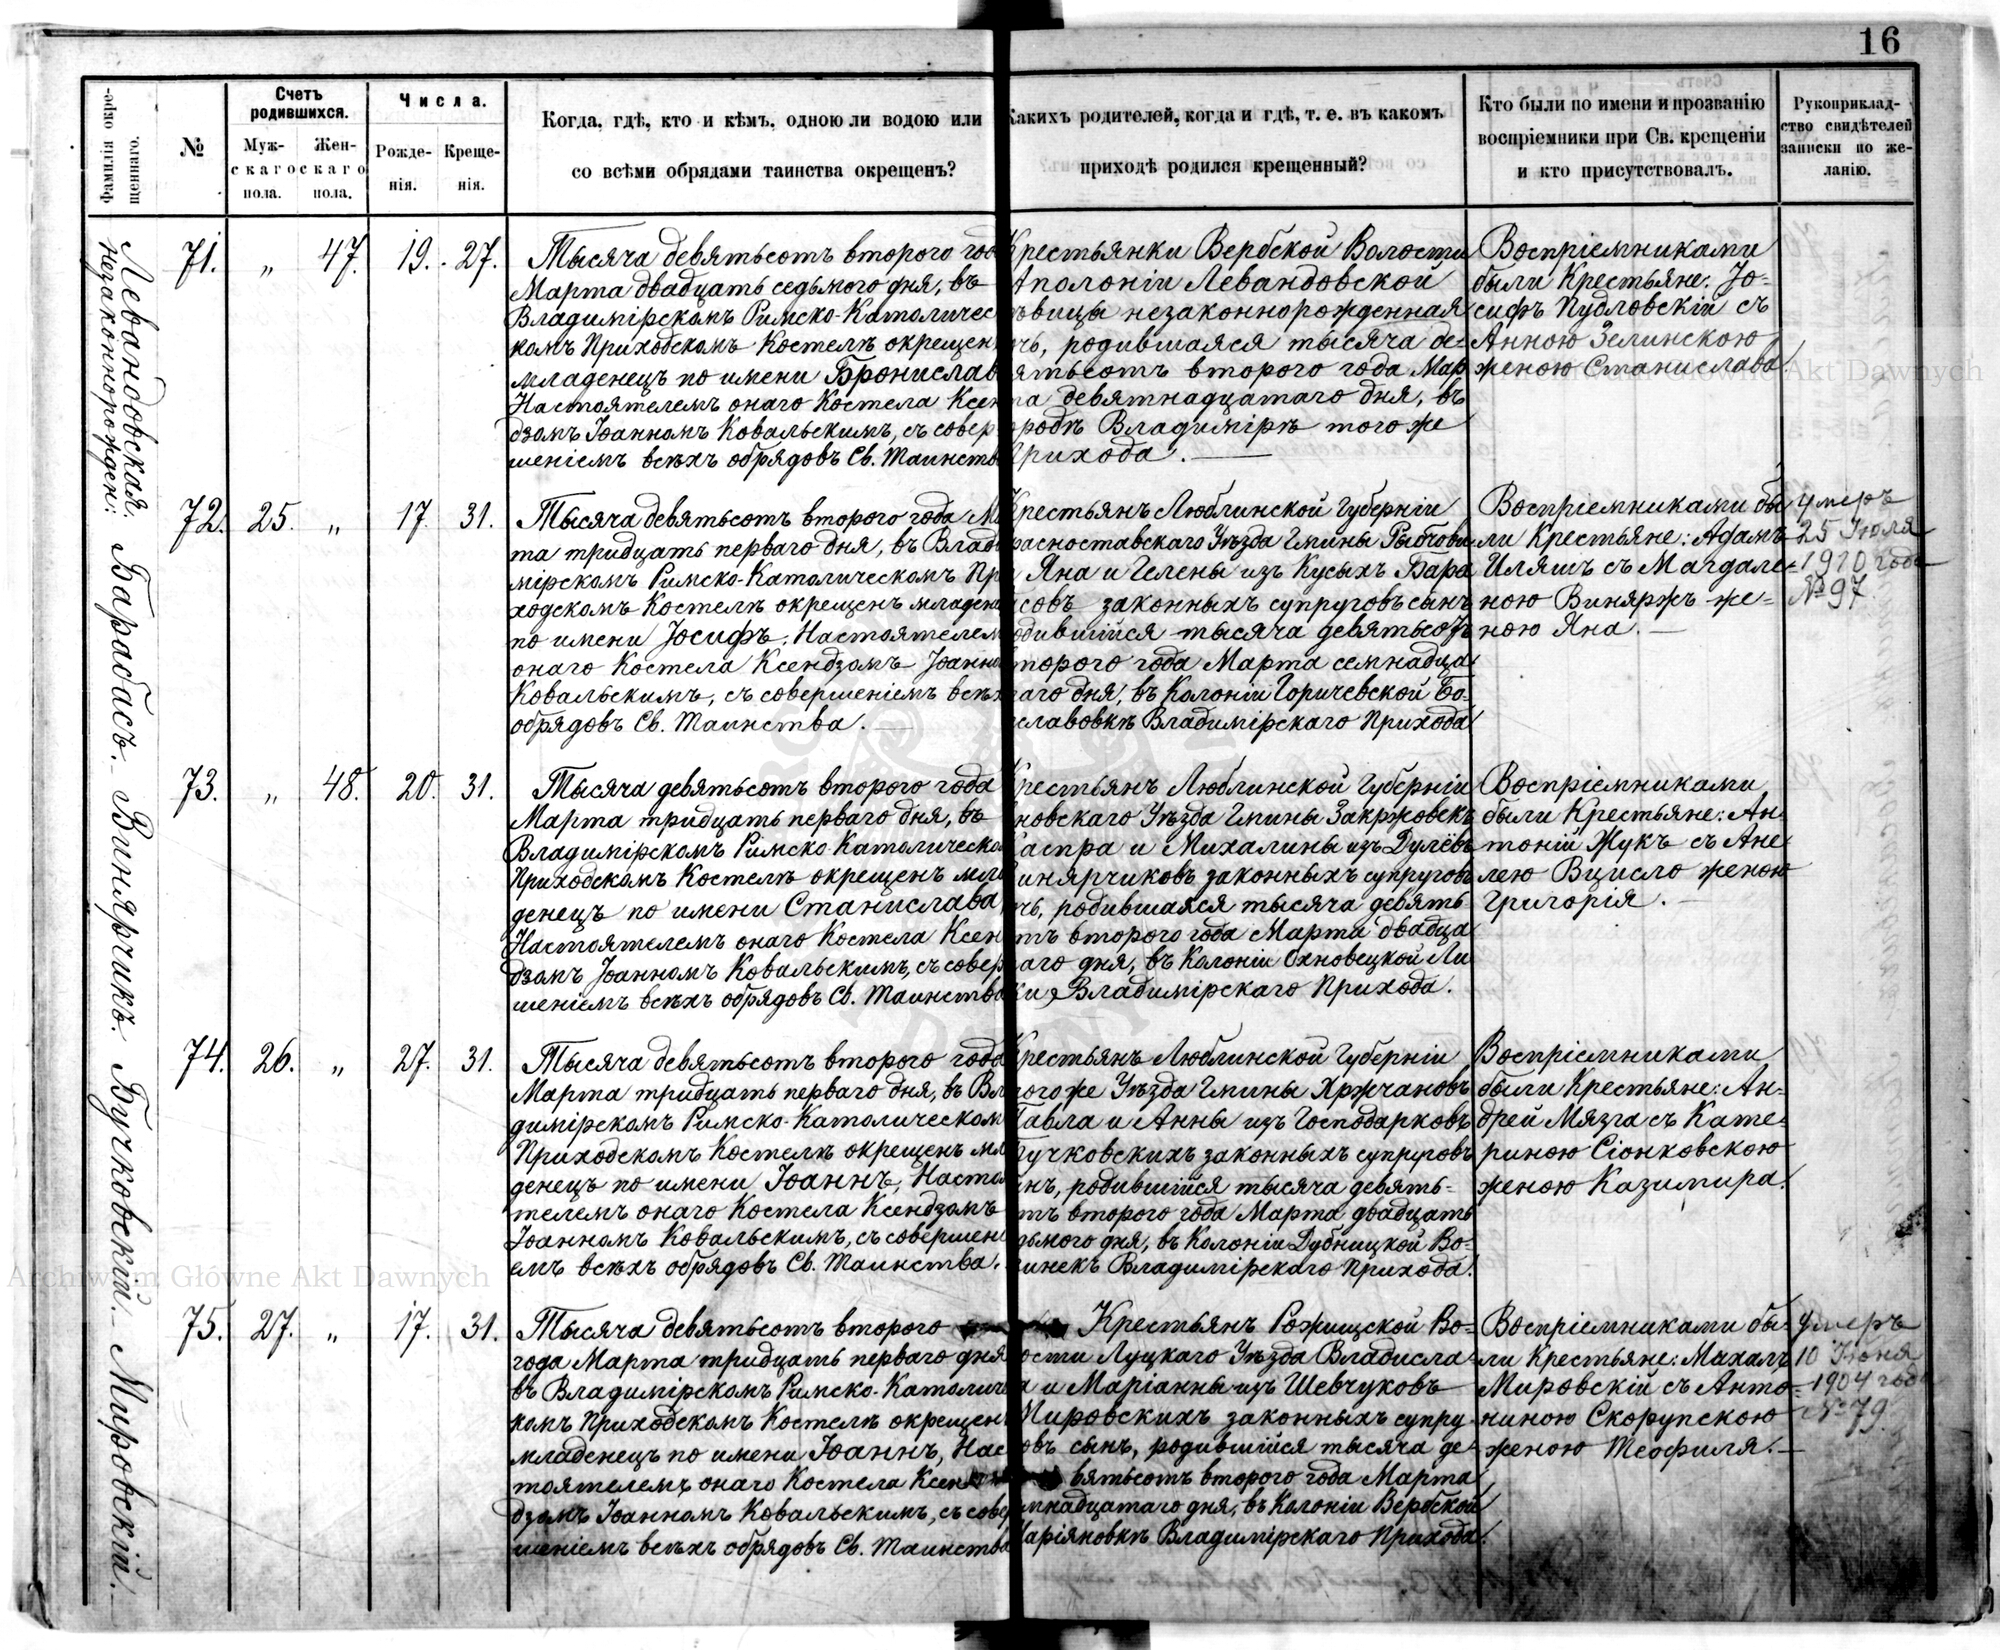 16
Фамилія окре-
щеннаго.
№
Счетъ
родившихся.
Муж-
скаго
пола.
Жен-
скаго
пола.
Числа.
Рожде-
нія.
Креще-
нія.
Когда, гдѣ, кто и кѣмъ, одною ли водою или
со всѣми обрядами таинства окрещенъ?
Какихъ родителей, когда и гдѣ, т. е. въ какомъ
приходѣ родился крещенный?
Кто были по имени и прозванію
воспріемники при Св. крещеніи
и кто присутствовалъ.
Рукоприклад-
ство свидѣтелей
записки по же-
ланію.
Левандовская
незаконнорожден:
71. " 47. 19. 27.
Тысяча девятьсотъ второго год
Марта двадцать седьмого дня, въ
Владимірскомъ Римско-Католичес
комъ Приходскомъ Костелѣ окрещен
младенецъ по имени Бронислав
Настоятелемъ онаго Костела Ксен
дзомъ Іоанномъ Ковальскимъ, съ совер
шеніемъ всѣхъ обрядовъ Св. Таинств
Крестьянки Вербской Волости
Аполоніи Левандовской
ѣвицы незаконнорожденная
чь, родившаяся тысяча де-
вятьсотъ второго года Мар
та девятнадцатаго дня, въ
ородѣ Владимірѣ того же
Прихода.
Воспріемниками
были Крестьяне: Іо-
сифъ Пудловскій съ
Анною Зелинскою
женою Станислава.
Барабасъ.
72. 25. " 17. 31.
Тысяча девятьсотъ второго года М
та тридцать перваго дня, въ Влади
мірскомъ Римско-Католическомъ При
ходскомъ Костелѣ окрещенъ младен
по имени Іосифъ, Настоятелем
онаго Костела Ксендзомъ Іоанно
Ковальскимъ, съ совершеніемъ всѣх
обрядовъ Св. Таинства.
Крестьянъ Люблинской Губерніи
расноставскаго Уѣзда Гмины Рыбчови
Яна и Гелены изъ Кусыхъ Бара
совъ законныхъ супруговъ сынъ
одившійся тысяча девятьсотъ
второго года Марта семнадца
таго дня, въ Колоніи Горичевской Бо-
славовкѣ Владимірскаго Прихода.
Воспріемниками бы-
ли Крестьяне: Адамъ
Иляшъ съ Магдале-
ною Виняржъ же-
ною Яна.
Умеръ
25 Іюля
1910 года
№ 97
Винярчикъ.
73. " 48. 20. 31.
Тысяча девятьсотъ второго года
Марта тридцать перваго дня, въ
Владимірскомъ Римско-Католическо
Приходскомъ Костелѣ окрещенъ мла
денецъ по имени Станислава,
Настоятелемъ онаго Костела Ксен
дзомъ Іоанномъ Ковальскимъ, съ совер
шеніемъ всѣхъ обрядовъ Св. Таинства
Крестьянъ Люблинской Губерніи
новскаго Уѣзда Гмины Закржовекъ
Каспра и Михалины изъ Дулёвъ
Винярчиковъ законныхъ супруговъ
чь, родившаяся тысяча девять
тъ второго года Марта двадца
таго дня, въ Колоніи Охновецкой Ли
ки, Владимірскаго Прихода.
Воспріемниками
были Крестьяне: Ан-
тоній Жукъ съ Ане-
лею Вцисло женою
Григорія.
Бучковскій.
74. 26. " 27. 31.
Тысяча девятьсотъ второго года
Марта тридцать перваго дня, въ Вл
димірскомъ Римско-Католическом
Приходскомъ Костелѣ окрещенъ мл
денецъ по имени Іоаннъ, Насто
телемъ онаго Костела Ксендзомъ
Іоанномъ Ковальскимъ, съ совершені
емъ всѣхъ обрядовъ Св. Таинства.
Крестьянъ Люблинской Губерніи
того же Уѣзда Гмины Хржчановъ
Павла и Анны изъ Господарковъ
Бучковскихъ законныхъ супруговъ
нъ, родившійся тысяча девять-
тъ второго года Марта двадцать
дьмого дня, въ Колоніи Дубницкой Во-
щинекъ Владимірскаго Прихода.
Воспріемниками
были Крестьяне: Ан-
дрей Мязга съ Кате-
риною Сіонковскою
женою Казимира.
Мировскій.
75. 27. " 17. 31.
Тысяча девятьсотъ второго
года Марта тридцать перваго дня
въ Владимірскомъ Римско-Католичес
комъ Приходскомъ Костелѣ окрещен
младенецъ по имени Іоаннъ, Нас
тоятелемъ онаго Костела Ксен
дзомъ Іоанномъ Ковальскимъ, съ совер
шеніемъ всѣхъ обрядовъ Св. Таинства
Крестьянъ Рожищской Во-
лости Луцкаго Уѣзда Владисла-
а и Маріанны изъ Шевчуковъ
Мировскихъ законныхъ супру-
овъ сынъ, родившійся тысяча де-
вятьсотъ второго года Марта
мнадцатаго дня, въ Колоніи Вербской
Маріяновкѣ Владимірскаго Прихода.
Воспріемниками бы-
ли Крестьяне: Михалъ
Мировскій съ Анто-
ниною Скорупскою
женою Теофиля.
Умеръ
10 Іюня
1904 года
№ 79.
Archiwum Główne Akt Dawnych